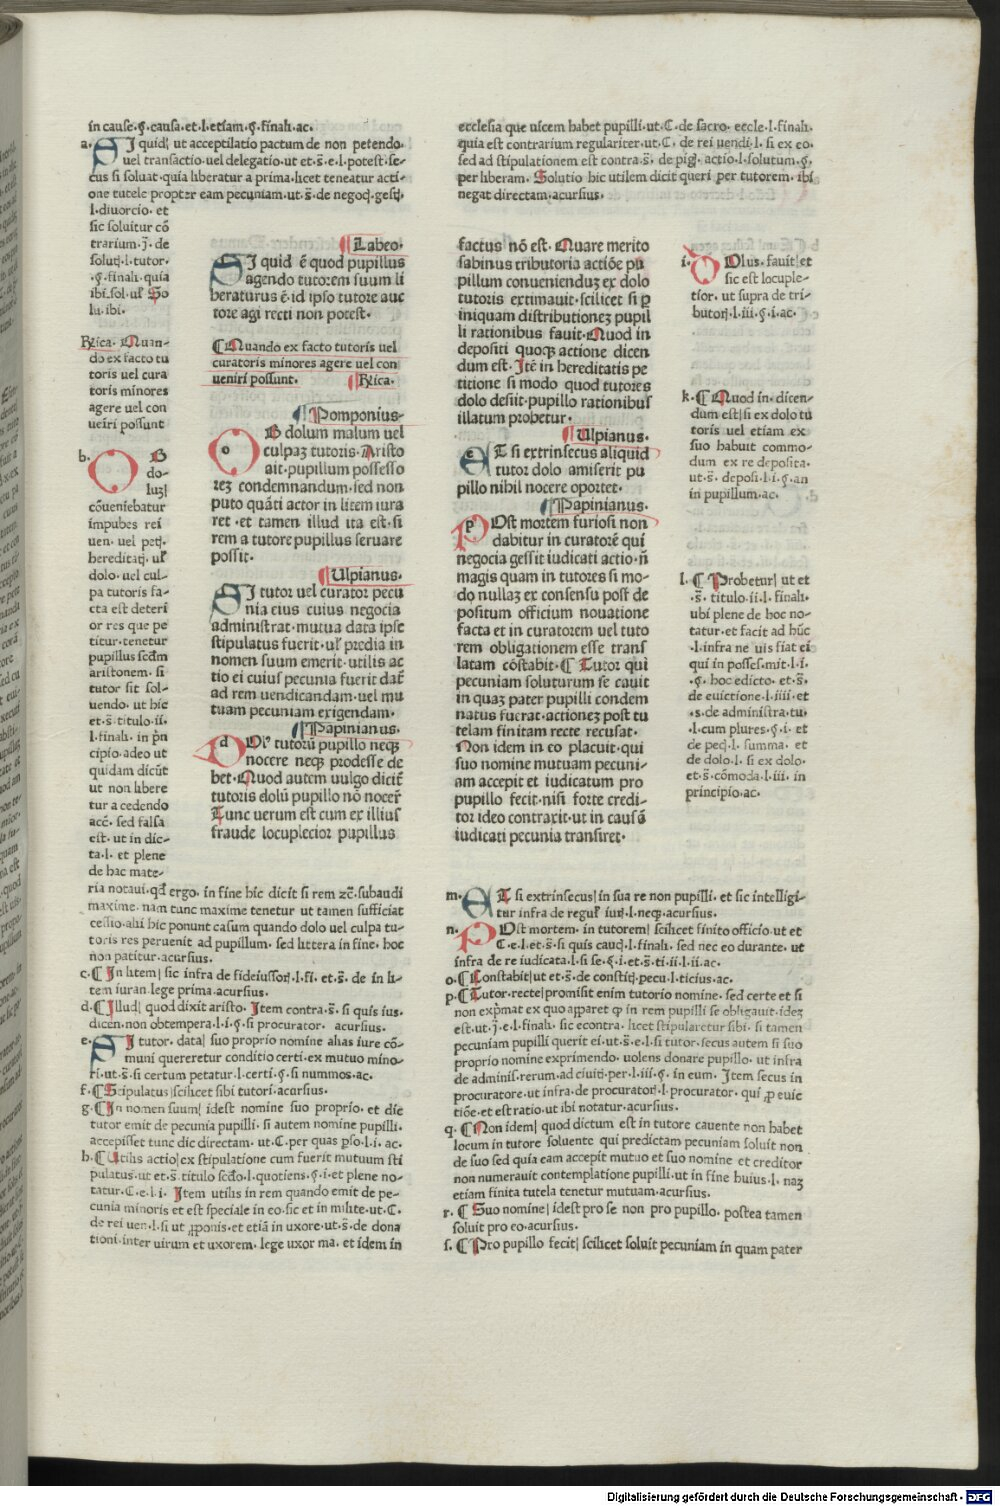 in cause.§.causa.et.l.etiam.§.finali.ac.
a. SI quid| ut acceptilatio pactum de non petendo.
uel transactio.uel delegatio.ut et.s̄.e.l.potest.se-
cus si soluat.quia liberatur a prima.licet teneatur acti-
one tutele propter eam pecuniam.ut.s̄.de negoc̄.gest̄.
l.diuorcio. et
sic soluitur cō
trarium.j̄. de
solut̄.l.tutor.
.§.finali.quia
ibi.sol.uł So
lu.ibi.
Rīca. Quan-
do ex facto tu
toris uel cura
toris minores
agere uel con
ueīri possunt
b. OB
do-
luȝ|
cōueniebatur
impubes rei
uen. uel pet̄.
hereditat̄. uł
dolo. uel cul-
pa tutoris fa-
cta est deteri
or res que pe
titur.tenetur
pupillus scd̄m
aristonem. si
tutor sit sol-
uendo. ut hic
et.s̄.titulo.ii.
l.finali. in p̄n
cipio.adeo ut
quidam dicūt
ut non libere
tur a cedendo
acc̄. sed falsa
est. ut in dic-
ta.l. et plene
de hac mate-
ria notaui.qđ ergo. in fine hic dicit si rem zc̄.subaudi
maxime. nam tunc maxime tenetur ut tamen sufficiat
cessio.alii hic ponunt casum quando dolo uel culpa tu-
toris res peruenit ad pupillum. sed littera in fine. hoc
non patitur.acursius.
c.¶ In litem| sic infra de fideiussor̄.l.fi. et.s̄. de in li-
tem iuran.lege prima.acursius.
d.¶ Illud| quod dixit aristo. Item contra.s̄. si quis ius.
dicen.non obtempera.l.i.§.si procurator. acursius.
e. SI tutor. data| suo proprio nomine alias iure cō-
muni quereretur conditio certi.ex mutuo mino-
ri.ut.s̄.si certum petatur.l.certi.§.si nummos.ac.
f.¶ Stipulatus|scilicet sibi tutori.acursius.
g.¶ In nomen suum| idest nomine suo proprio. et dic
tutor emit de pecunia pupilli. si autem nomine pupilli.
accepisset tunc dic directam. ut.C.per quas pso.l.i. ac.
h.¶ Utilis actio|ex stipulatione cum fuerit mutuum sti
pulatus.ut et.s̄.titulo scdo.l.quotiens.§.i.et plene no-
tatur.C.e.l.i. Item utilis in rem quando emit de pe-
cunia minoris et est speciale in eo.sic et in milite.ut.C.
de rei uen.l.si ut ꝓponis.et etiā in uxore.ut.s̄.de dona
tioni.inter uirum et uxorem. lege uxor ma. et idem in
¶ Labeo.
SI quid ē quod pupillus
agendo tutorem suum li
beraturus ē.id ipso tutore auc
tore agi recti non potest.
¶ Quando ex facto tutoris uel
curatoris minores agere uel con
ueniri possunt. ¶ Rīca.
¶ Pomponius.
OB dolum malum uel
culpaȝ tutoris. Aristo
ait.pupillum possesso
reȝ condemnandum.sed non
puto quāti actor in litem iura
ret .et tamen illud ita est.si
rem a tutore pupillus seruare
possit.
¶ Ulpianus.
SI tutor uel curator pecu
nia eius cuius negocia
administrat.mutua data ipse
stipulatus fuerit.uł predia in
nomen suum emerit.utilis ac
tio ei cuius pecunia fuerit dat̄
ad rem uendicandam.uel mu
tuam pecuniam exigendam.
¶ Papinianus.
DOl' tutorū pupillo neqȝ
nocere neqȝ prodesse de
bet.Quod autem uulgo dicit̄
tutoris dolū pupillo nō nocer̄
Tunc uerum est cum ex illius
fraude locuplecior pupillus
ecclesia que uicem habet pupilli.ut.C.de sacro. eccle.l.finali.
quia est contrarium regulariter.ut.C. de rei uendi.l. si ex eo.
sed ad stipulationem est contra.s̄. de piḡ. actio.l.solutum.§.
per liberam. Solutio hic utilem dicit queri per tutorem. ibi
negat directam.acursius.
factus nō est. Quare merito
sabinus tributoria actiōe pu
pillum conueniendūȝ ex dolo
tutoris extimauit.scilicet si p̄
iniquam distributioneȝ pupil
li rationibus fauit.Quod in
depositi quoqȝ actione dicen
dum est. Itē in hereditatis pe
titione si modo quod tutores
dolo desiit.pupillo rationibus
illatum probetur.
¶ Ulpianus.
ET si extrinsecus aliquid
tutor dolo amiserit pu
pillo nihil nocere oportet.
¶ Papinianus.
POst mortem furiosi non
dabitur in curatorē qui
negocia gessit iudicati actio.n̄
magis quam in tutores si mo-
do nullaȝ ex consensu post de
positum officium nouatione
facta et in curatorem uel tuto
rem obligationem esse trans
latam cōstabit.¶ Tutor qui
pecuniam soluturum se cauit
in quaȝ pater pupilli condem
natus fuerat.actioneȝ post tu
telam finitam recte recusat.
Non idem in eo placuit.qui
suo nomine mutuam pecuni-
am accepit et iudicatum pro
pupillo fecit.nisi forte credi-
tor ideo contraxit.ut in causā
iudicati pecunia transiret.
i. DOlus. fauit|et
sic est locuple-
tior. ut supra de tri-
butor̄.l.iii.§.i.ac.
k.¶ Quod in. dicen-
dum est| si ex dolo tu
toris uel etiam ex
suo habuit commo-
dum ex re deposita.
ut.s̄. deposi.l.i.§.an
in pupillum.ac.
l.¶ Probetur| ut et
.s̄. titulo.ii.l. finali.
ubi plene de hoc no-
tatur.et facit ad hūc
.l.infra ne uis fiat ei
qui in posses.mit.l.i.
.§. hoc edicto. et.s̄.
de euictione.l.iiii.et
.s.de administra.tu.
.l.cum plures.§.i. et
de pec̄.l. summa. et
de dolo.l. si ex dolo.
et.s̄.cōmoda.l.iii. in
principio.ac.
m. ET si extrinsecus| in sua re non pupilli. et sic intelligi-
tur infra de reguł iur̄.l.neqȝ.acursius.
n. POst mortem. in tutorem| scilicet finito officio.ut et
C.e.l.et.s̄.si quis cauc̄.l.finali. sed nec eo durante. ut
infra de re iudicata.l.si se.§.i.et.s̄.ti.ii.l.ii.ac.
o.¶ Constabit|ut et.s̄.de constit̄.pecu.l.ticius.ac.
p.¶ Tutor.recte|promisit enim tutorio nomine. sed certe et si
non exp̄mat ex quo apparet ꝙ in rem pupilli se obligauit.ideȝ
est.ut.j̄.e.l.finali. sic econtra. licet stipularetur sibi. si tamen
pecuniam pupilli querit ei.ut.s̄.e.l.si tutor.secus autem si suo
proprio nomine exprimendo. uolens donare pupillo. ut infra
de adminis.rerum.ad ciuit̄.per.l.iii.§. in eum. Item secus in
procuratore.ut infra.de procurator̄.l.procurator. qui ꝓ euic
tiōe.et est ratio.ut ibi notatur.acursius.
q.¶ Non idem| quod dictum est in tutore cauente non habet
locum in tutore soluente qui predictam pecuniam soluit non
de suo sed quia eam accepit mutuo et suo nomine et creditor
non numerauit contemplatione pupilli.ut in fine huius.l. naȝ
etiam finita tutela tenetur mutuam.acursius.
r.¶ Suo nomine| idest pro se non pro pupillo. postea tamen
soluit pro eo.acursius.
s.¶ Pro pupillo fecit| scilicet soluit pecuniam in quam pater
Digitalisierung gefördert durch die Deutsche Forschungsgemeinschaft - DFG